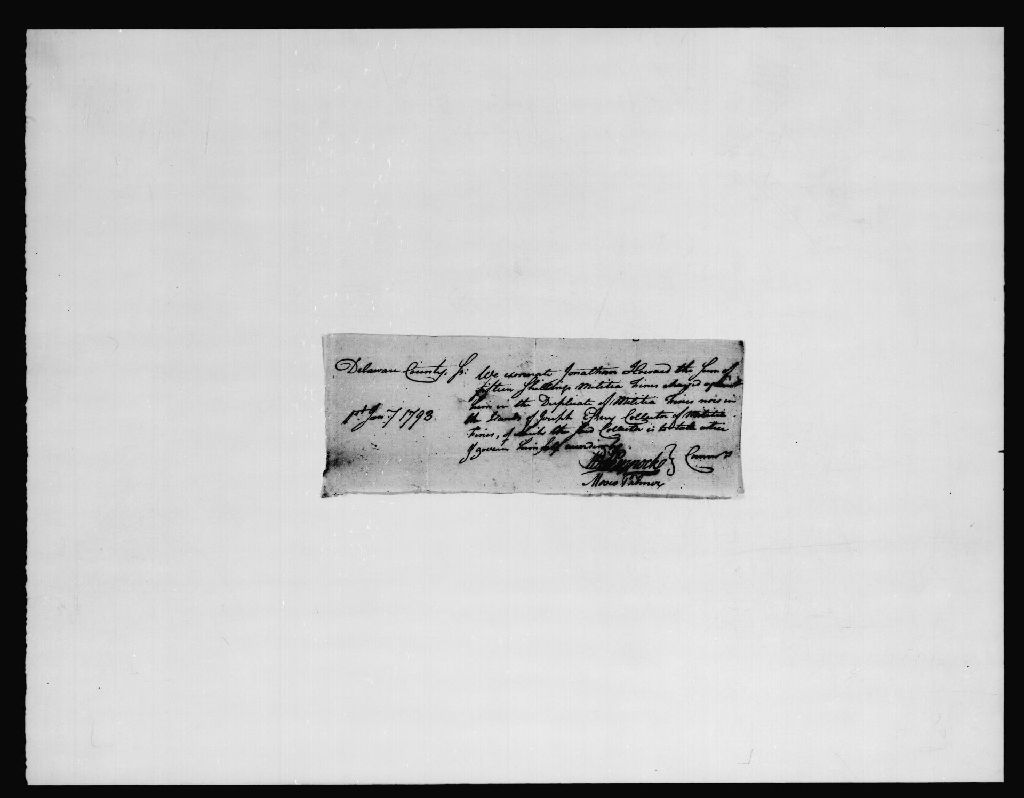 Delaware County Ss: We exonerate Jonathan Howard the sum of
fifteen Shillings Militia Fines charged against
him in the Duplicate of Militia Fines now in
1st Jany 1793. the Hands of Joseph Collector of Militia
Fines, of which the said Collector is to take notice
& govern himself accordingly
Pennock } Commrs
Moses Palmer